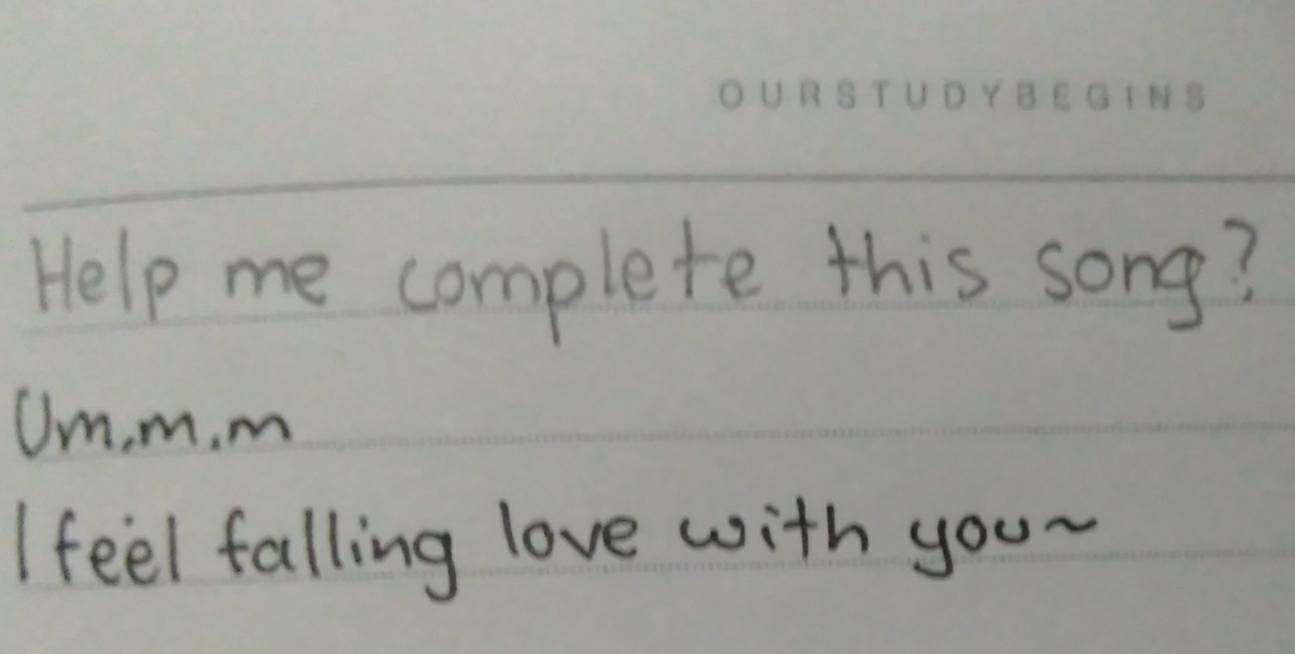 OURSTUDYBEGINS
Help me complete this song?
Um.m.m
I feel falling love with you~